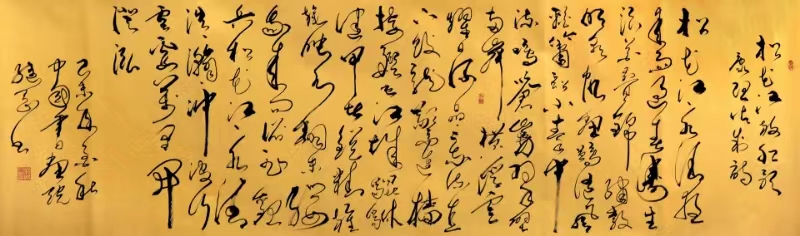 松花江放船歌
康熙皇帝詩
松花江江水清夜
來雨過春濤生
浪花疊錦繡縠
明彩帆畫鷁隨風
輕簫韶小奏中
流鳴蒼巖翠壁
兩岸橫浮雲
耀日何晶晶乘流直
下蛟龍驚連檣
接艦屯江城貔貅
健甲皆銳精旌
旄映水翻朱纓
我來問俗非觀
兵松花江江水清
浩浩瀚瀚沖波行
雲霞萬里開
澄泓
中國書畫院